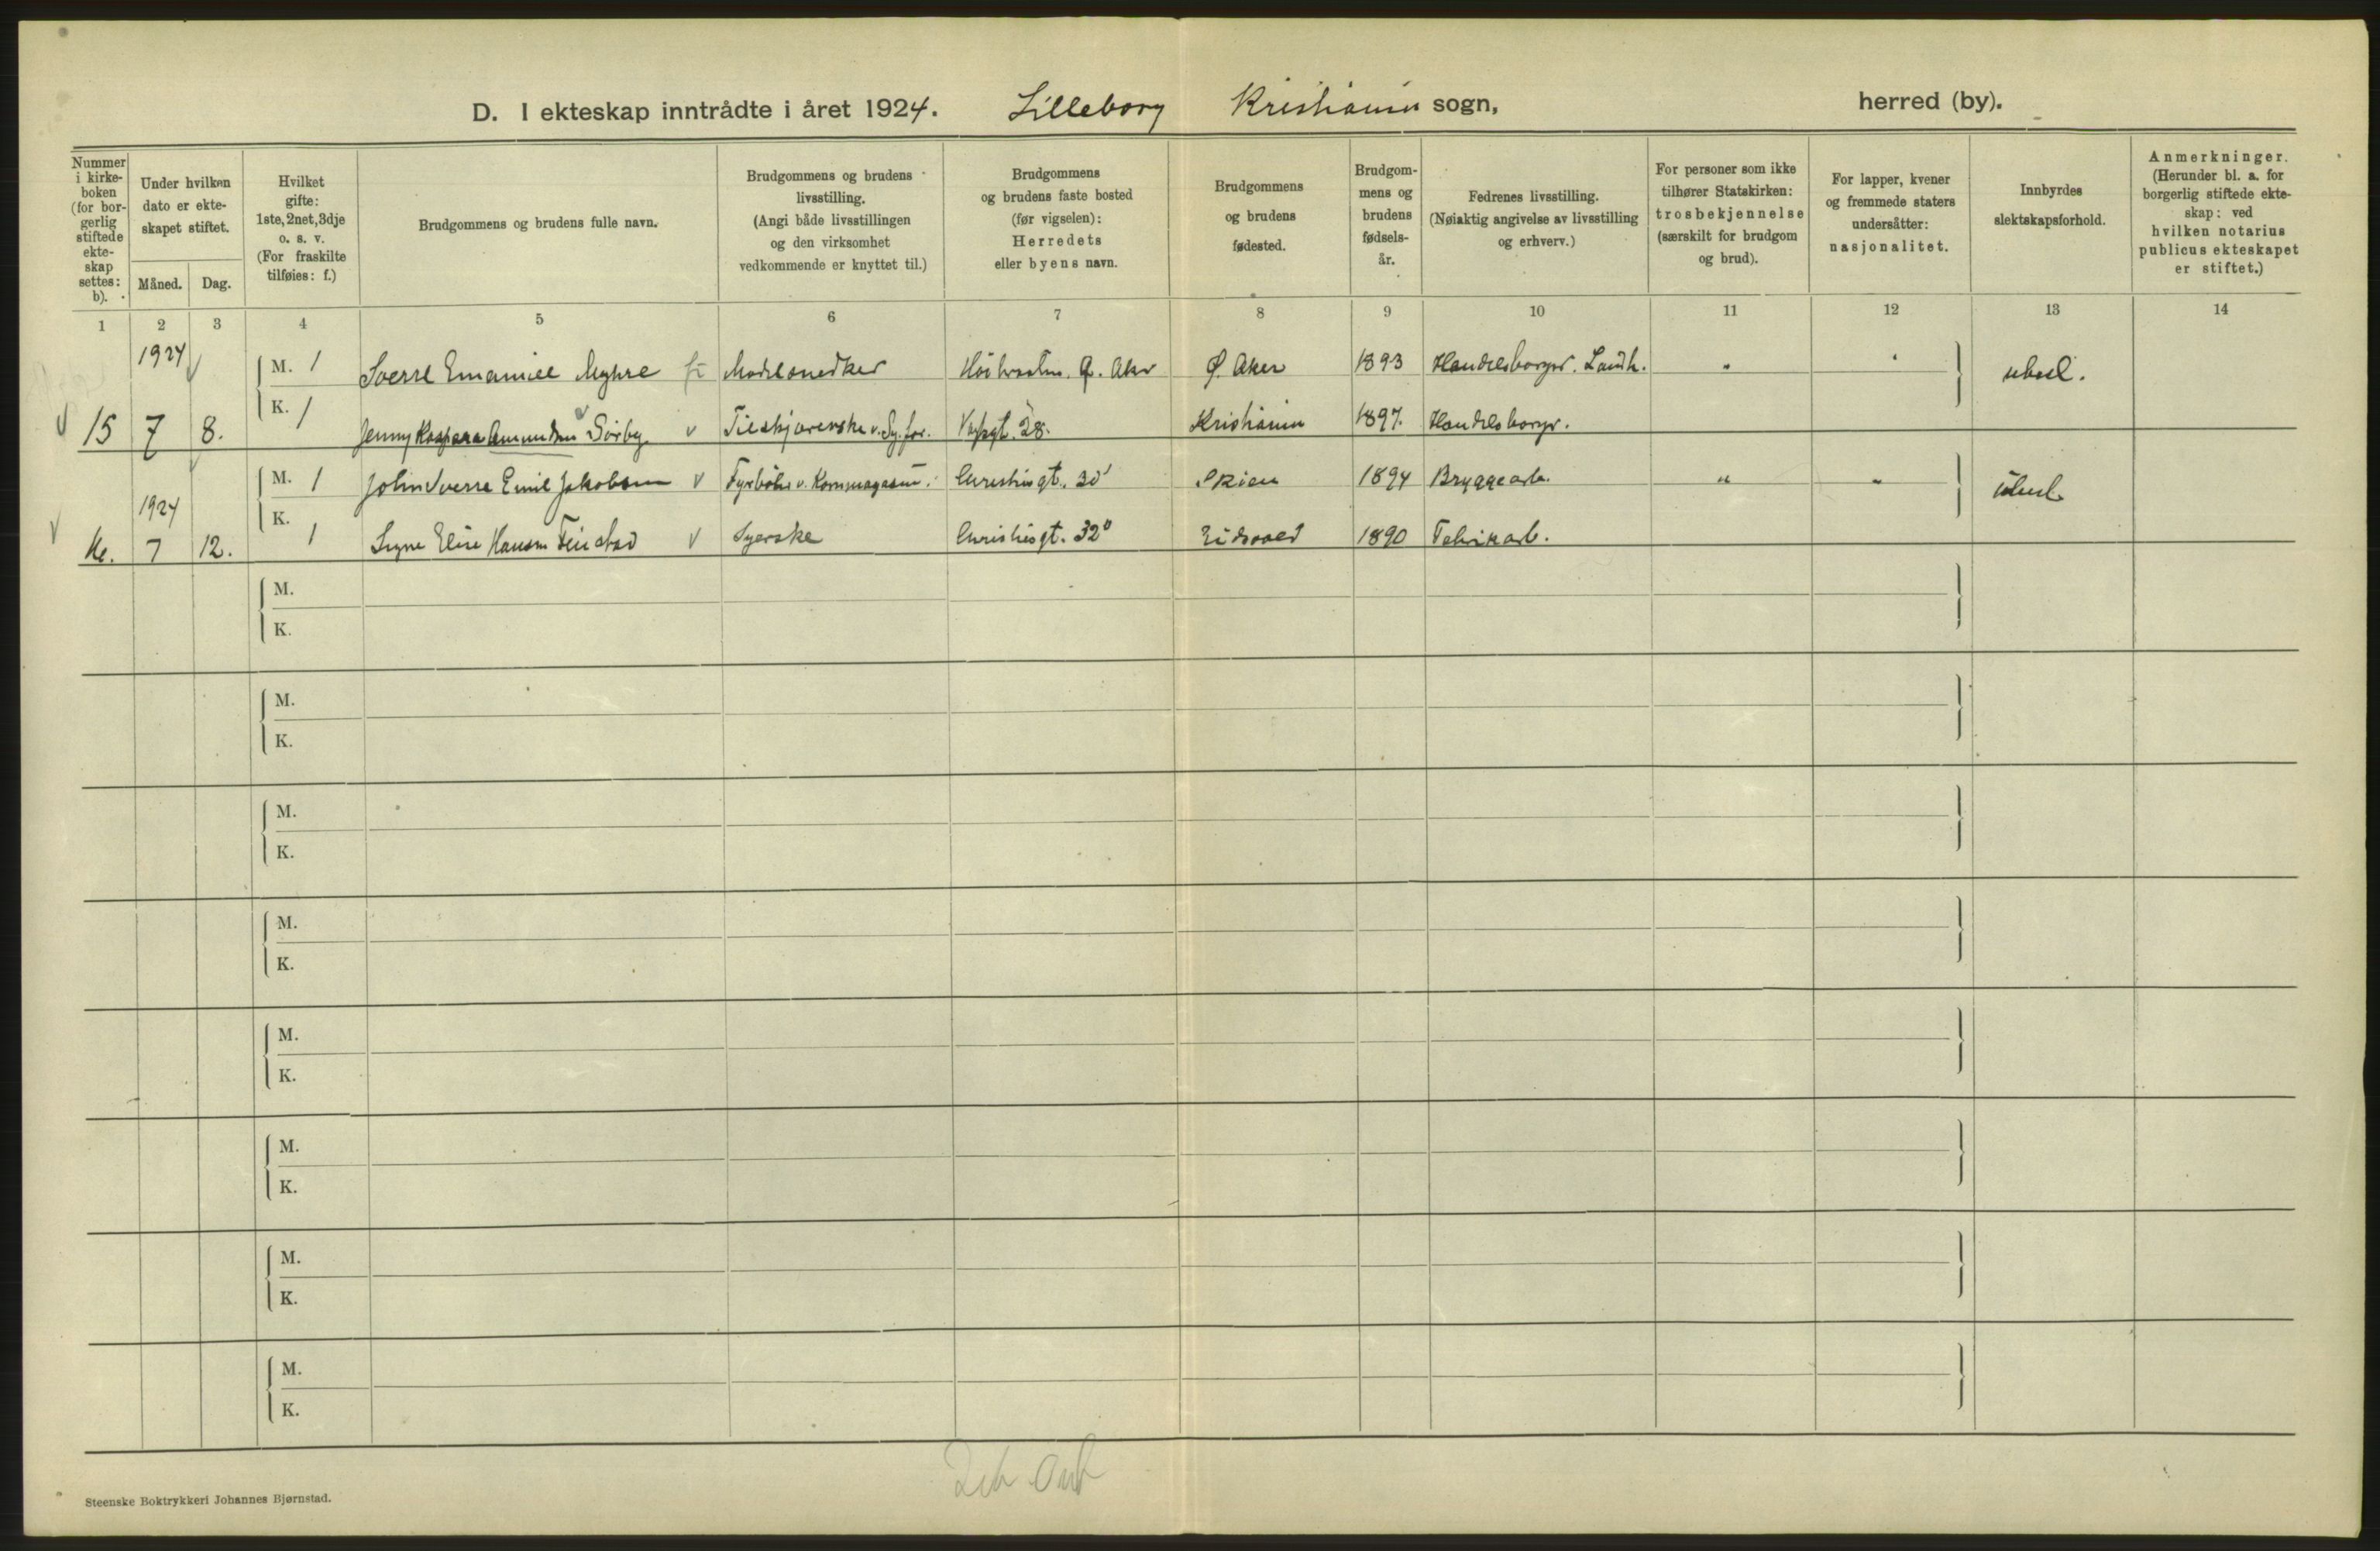 D. I ekteskap inntrådte i året 1924. Lilleborg Kristiania sogn, herred (by).
Nummer i kirke-boken (for bor-gerlig stiftede ekte-skap settes: b).
Under hvilken dato er ekte-skapet stiftet.
Måned. Dag.
Hvilket gifte: 1ste, 2net, 3dje o. s. v. (For fraskilte tilføies: f.)
Brudgommens og brudens fulle navn.
Brudgommens og brudens livsstilling. (Angi både livsstillingen og den virksomhet vedkommende er knyttet til.)
Brudgommens og brudens faste bosted (før vigselen): Herredets eller byens navn.
Brudgommens og brudens fødested.
Brudgom-mens og brudens fødsels-år.
Fedrenes livsstilling. (Nøiaktig angivelse av livsstilling og erhverv.)
For personer som ikke tilhører Statskirken: trosbekjennelse (særskilt for brudgom og brud).
For lapper, kvener og fremmede staters undersåtter: nasjonalitet.
Innbyrdes slektskapsforhold.
Anmerkninger. (Herunder bl. a. for borgerlig stiftede ekte-skap: ved hvilken notarius publicus ekteskapet er stiftet.)
1 2 3 4 5 6 7 8 9 10 11 12 13 14
1924 M. 1 Sverre Emanuel Myhre Modelsnedker Ø. Aker Ø. Aker 1893 Handelsborger. Landh. " " ubesl.
15 7 8. K. 1 Jenny Kaspara Amundsen Sørby Tilskjærerske v. Sy.for. 28. Kristiania 1897. Handelsborger.
1924 M. 1 John Sverre Emil Jakobsen Fyrbøter v. Kornmagasin. Christiesgt. 30 Skien 1894 Bryggearb. " " ubesl.
7 12. K. 1 Signe Elise Hansen Finstad Syerske Christiesgt. 32 Eidsvold 1890 Fabrikarb.
M.
K.
M.
K.
M.
K.
M.
K.
M.
K.
M.
K.
M.
K.
M.
K.
Steenske Boktrykkeri Johannes Bjørnstad.